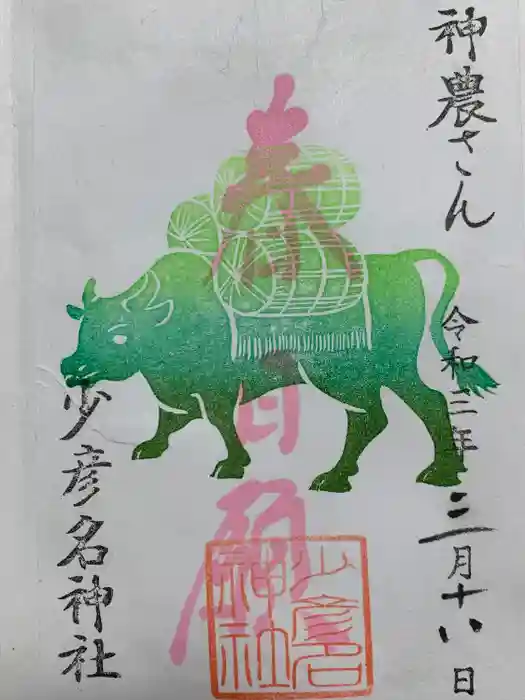 神農さん
令和三年三月十八日
少彦名神社
少彦名
神社